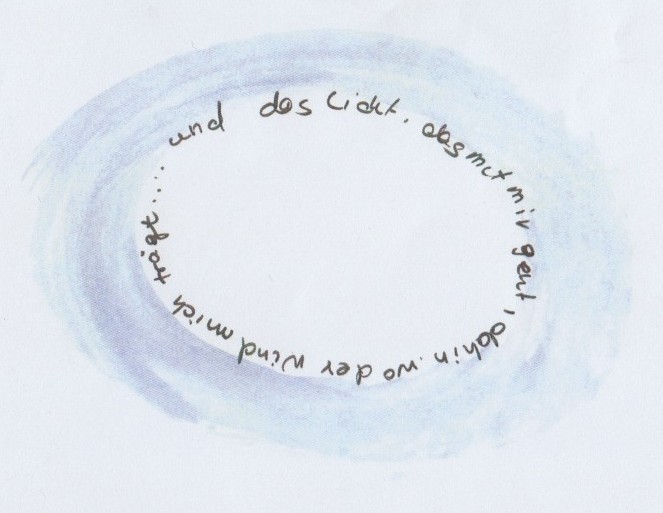 und das Licht, das mit mir geht, dahin wo der Wind mich trägt....